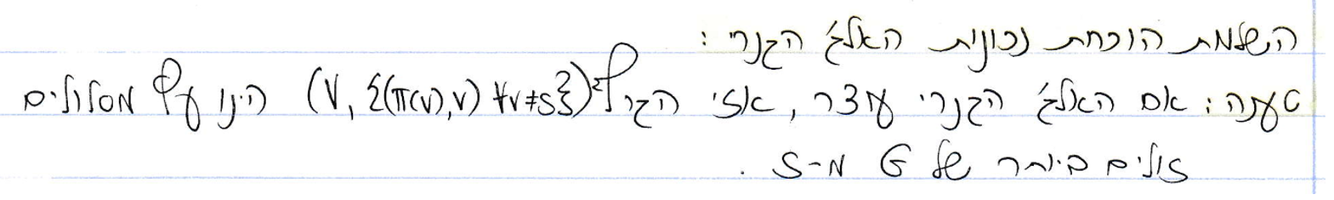 השלמת הוכחת נכונות האלג' הגנרי:
טענה: אם האלג' הגנרי עצר, אזי הגרף (V, {(π(v),v) ∀v≠s}) הינו עץ מסלולים
זולים ביותר של G מ-s.